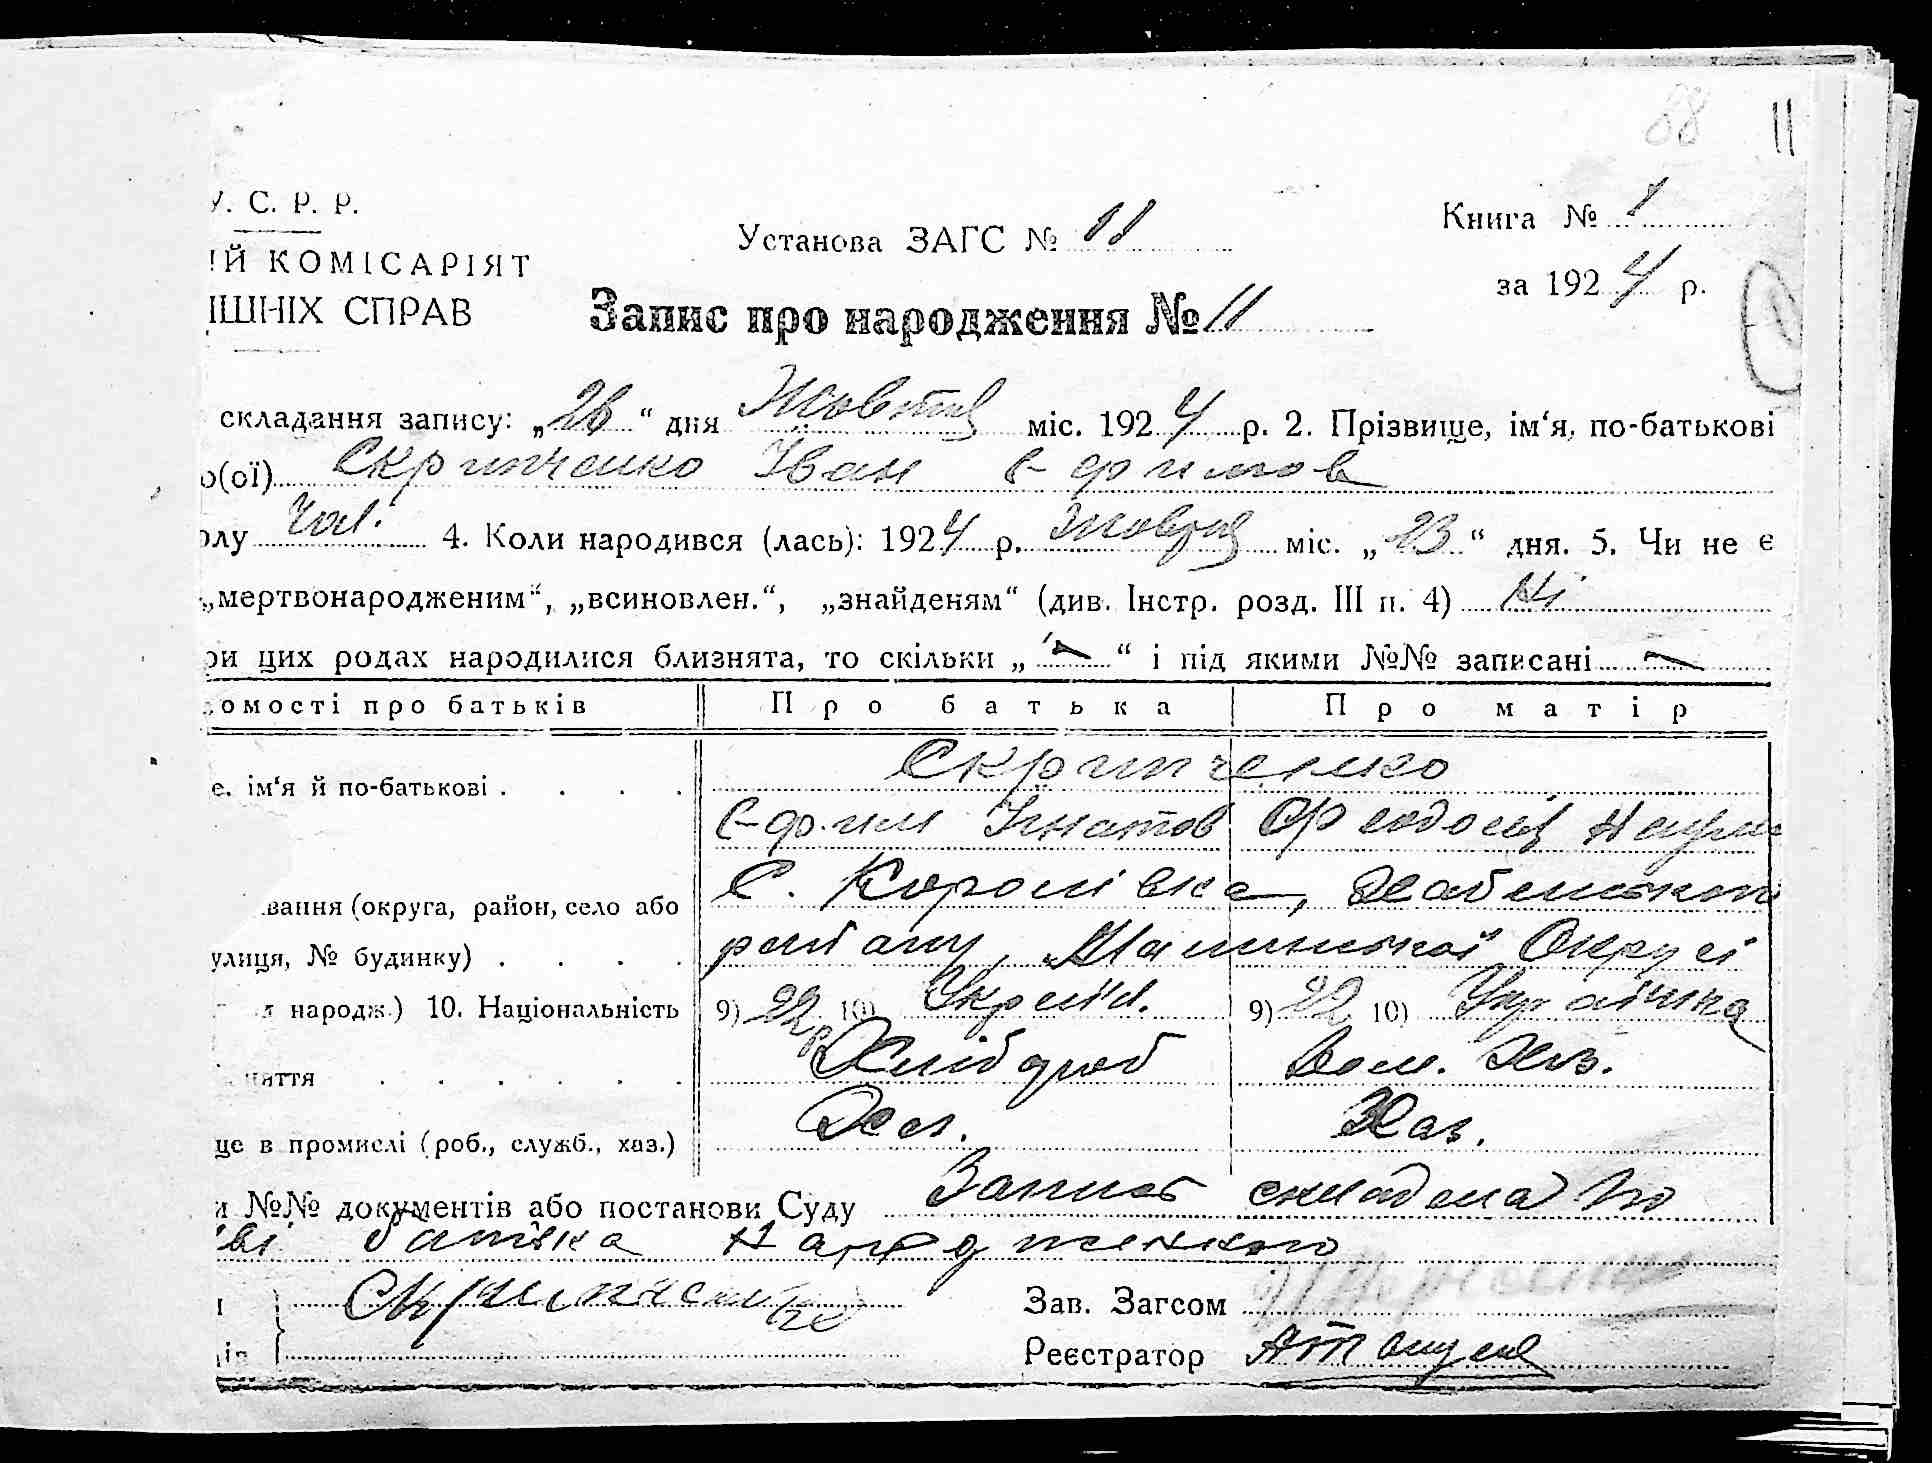 88 11
У. С. Р. Р.
Установа ЗАГС № 11 Книга № 1
ІЙ КОМІСАРІЯТ
за 1924 р.
ІШНІХ СПРАВ
Запис про народження № 11
складання запису: „26“ дня Жовтня міс. 1924 р. 2. Прізвище, ім‘я, по-батькові
о(ої) Скрипченко Іван Єфимов
олу Чол. 4. Коли народився (лась): 1924 р. Жовтня міс. „23“ дня. 5. Чи не є
„мертвонародженим“, „всиновлен.“, „знайденям“ (див. Інстр. розд. III п. 4) Ні
ри цих родах народилися близнята, то скільки „—“ і під якими №№ записані —
омості про батьків Про батька Про матір
Скрипченко
е. ім‘я й по-батькові . . . .
Єфим Ігнатов Феодосія Наум
вання (округа, район, село або С. Королівка, Хабенського
улиця, № будинку) . . . . району, Малинської Округи
народж.) 10. Національність 9) 22 р 10) Україн. 9) 22 10) Українка
няття . . . . . . Хлібороб Дом. Хоз.
ще в промислі (роб., служб., хаз.) Хаз. Хаз.
и №№ документів або постанови Суду Запись складена по
ві батька народженного
Скрипченко Зав. Загсом
ів Реєстратор